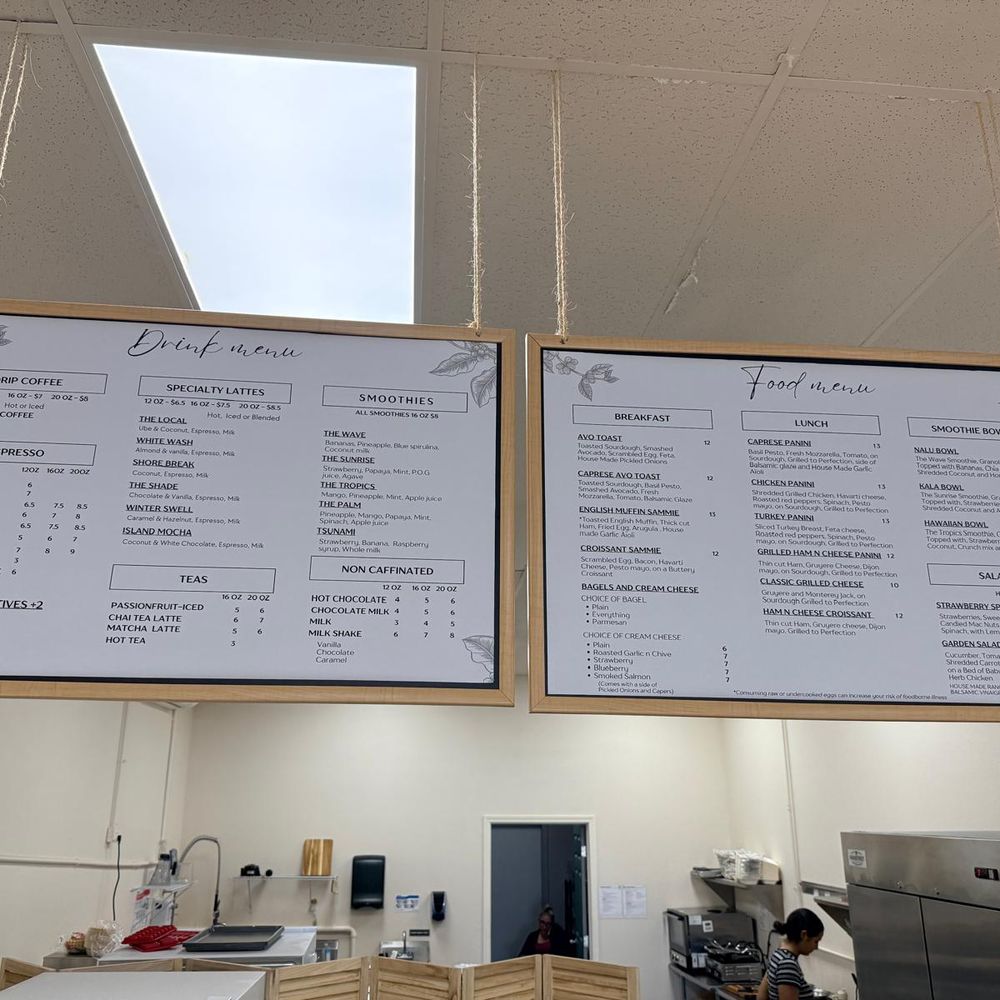 Drink menu
RIP COFFEE
16 OZ - $7 20 OZ - $8
Hot or Iced
COFFEE
PRESSO
12OZ 16OZ 20OZ
6
7
6.5 7.5 8.5
6 7 8
6.5 7.5 8.5
5 6 7
7 8 9
3
6
TIVES +2
SPECIALTY LATTES
12 OZ - $6.5 16 OZ - $7.5 20 OZ - $8.5
Hot, Iced or Blended
THE LOCAL
Ube & Coconut, Espresso, Milk
WHITE WASH
Almond & vanilla, Espresso, Milk
SHORE BREAK
Coconut, Espresso, Milk
THE SHADE
Chocolate & Vanilla, Espresso, Milk
WINTER SWELL
Caramel & Hazelnut, Espresso, Milk
ISLAND MOCHA
Coconut & White Chocolate, Espresso, Milk
TEAS
16 OZ 20 OZ
PASSIONFRUIT-ICED 5 6
CHAI TEA LATTE 6 7
MATCHA LATTE 5 6
HOT TEA 3
SMOOTHIES
ALL SMOOTHIES 16 OZ $8
THE WAVE
Bananas, Pineapple, Blue spirulina,
Coconut milk
THE SUNRISE
Strawberry, Papaya, Mint, P.O.G
juice, Agave
THE TROPICS
Mango, Pineapple, Mint, Apple juice
THE PALM
Pineapple, Mango, Papaya, Mint,
Spinach, Apple juice
TSUNAMI
Strawberry, Banana, Raspberry
syrup, Whole milk
NON CAFFINATED
12 OZ 16 OZ 20 OZ
HOT CHOCOLATE 4 5 6
CHOCOLATE MILK 4 5 6
MILK 3 4 5
MILK SHAKE 6 7 8
Vanilla
Chocolate
Caramel
Food menu
BREAKFAST
AVO TOAST 12
Toasted Sourdough, Smashed
Avocado, Scrambled Egg, Feta,
House Made Pickled Onions
CAPRESE AVO TOAST 12
Toasted Sourdough, Basil Pesto,
Smashed Avocado, Fresh
Mozzarella, Tomato, Balsamic Glaze
ENGLISH MUFFIN SAMMIE 13
*Toasted English Muffin, Thick cut
Ham, Fried Egg, Arugula, House
made Garlic Aioli
CROISSANT SAMMIE 12
Scrambled Egg, Bacon, Havarti
Cheese, Pesto mayo, on a Buttery
Croissant
BAGELS AND CREAM CHEESE
CHOICE OF BAGEL
• Plain
• Everything
• Parmesan
CHOICE OF CREAM CHEESE
• Plain 6
• Roasted Garlic n Chive 7
• Strawberry 7
• Blueberry 7
• Smoked Salmon 7
(Comes with a side of
Pickled Onions and Capers)
LUNCH
CAPRESE PANINI 13
Basil Pesto, Fresh Mozzarella, Tomato, on
Sourdough, Grilled to Perfection, side of
Balsamic glaze and House Made Garlic
Aioli
CHICKEN PANINI 13
Shredded Grilled Chicken, Havarti cheese,
Roasted red peppers, Spinach, Pesto
mayo, on Sourdough, Grilled to Perfection
TURKEY PANINI 13
Sliced Turkey Breast, Feta cheese,
Roasted red peppers, Spinach, Pesto
mayo, on Sourdough, Grilled to Perfection
GRILLED HAM N CHEESE PANINI 12
Thin cut Ham, Gruyere Cheese, Dijon
mayo, on Sourdough, Grilled to Perfection
CLASSIC GRILLED CHEESE 10
Gruyere and Monterey Jack, on
Sourdough Grilled to Perfection
HAM N CHEESE CROISSANT 12
Thin cut Ham, Gruyere cheese, Dijon
mayo, Grilled to Perfection
*Consuming raw or undercooked eggs can increase your risk of foodborne illness
SMOOTHIE BOW
NALU BOWL
The Wave Smoothie, Granol
Topped with Bananas, Chia
Shredded Coconut and Ho
KALA BOWL
The Sunrise Smoothie, Gr
Topped with, Strawberrie
Shredded Coconut and
HAWAIIAN BOWL
The Tropics Smoothie, G
Topped with, Strawberr
Coconut, Crunch mix a
SALA
STRAWBERRY SP
Strawberries, Swee
Candied Mac Nuts
Spinach, with Lem
GARDEN SALAD
Cucumber, Toma
Shredded Carrot
on a Bed of Bab
Herb Chicken
HOUSE MADE RAN
BALSAMIC VINAIG